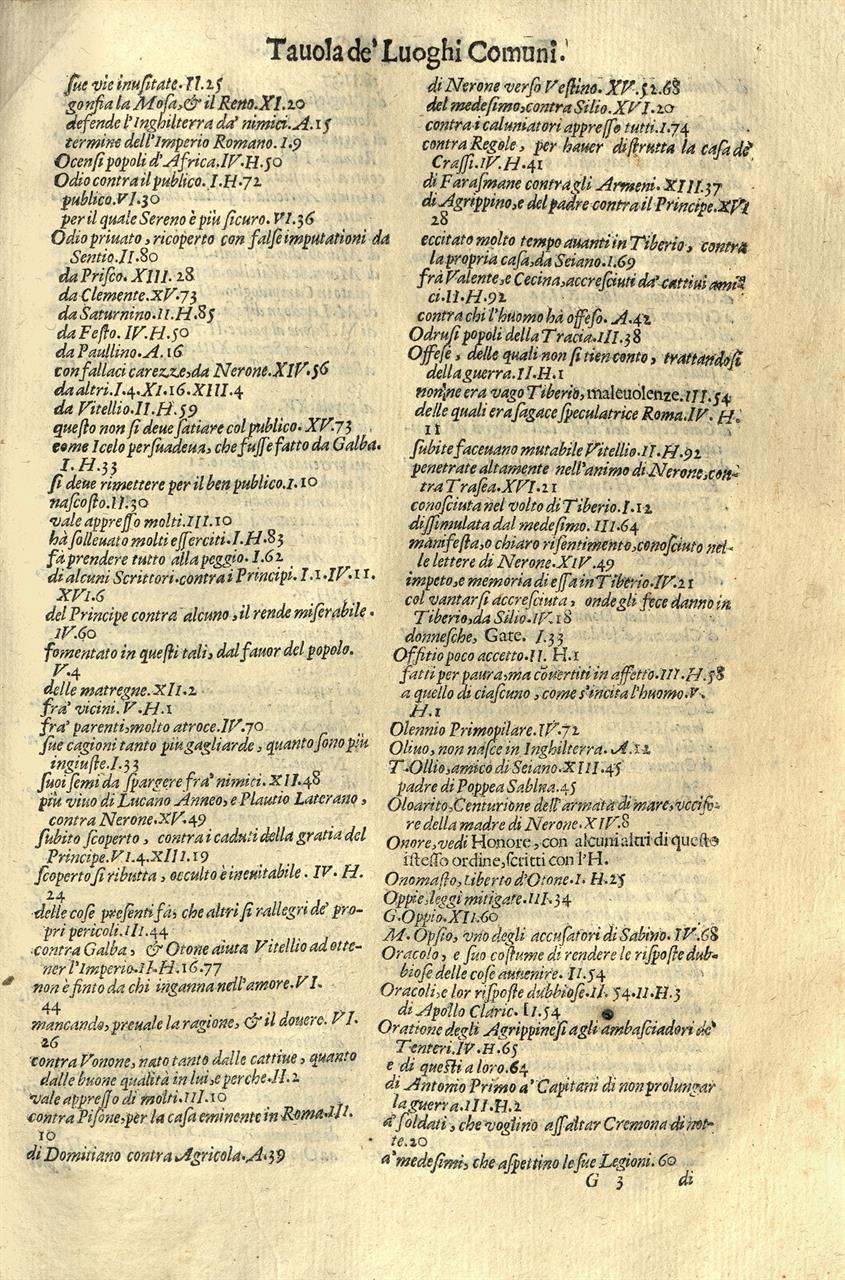 Tauola de' Luoghi Comuni.
sue vie inusitate. II. 25
gonfia la Mosa, & il Reno. XI. 20
defende l'Inghilterra da' nimici. A. 15
termine dell'Imperio Romano. I. 9
Ocensi popoli d'Africa. IV. H. 50
Odio contra il publico. I. H. 72
publico. VI. 30
per il quale Sereno è più sicuro. VI. 36
Odio priuato, ricoperto con false imputationi da
Sentio. II. 80
da Prisco. XIII. 28
da Clemente. XV. 73
da Saturnino. II. H. 85
da Festo. IV. H. 50
da Paullino. A. 16
con fallaci carezze, da Nerone. XIV. 56
da altri. I. 4. XI. 16. XIII. 4
da Vitellio. II. H. 59
questo non si deue satiare col publico. XV. 73
come Icelo persuadeua, che fusse fatto da Galba.
I. H. 33
si deue rimettere per il ben publico. I. 10
nascosto. II. 30
vale appresso molti. III. 10
hà solleuato molti esserciti. I. H. 83
fà prendere tutto alla peggio. I. 62
di alcuni Scrittori contra i Principi. I. 1. IV. 11.
XVI. 6
del Principe contra alcuno, il rende miserabile.
IV. 60
fomentato in questi tali, dal fauor del popolo.
V. 4
delle matregne. XII. 2
frà vicini. V. H. 1
frà parenti, molto atroce. IV. 70
sue cagioni tanto piu gagliarde, quanto sono più
ingiuste. I. 33
suoi semi da spargere frà nimici. XII. 48
più viuo di Lucano Anneo, e Plautio Laterano,
contra Nerone. XV. 49
subito scoperto, contra i caduti della gratia del
Principe. VI. 4. XIII. 19
scoperto si ributta, occulto è ineuitabile. IV. H.
24
delle cose presenti fà, che altri si rallegri de' pro-
pri pericoli. III. 44
contra Galba, & Otone aiuta Vitellio ad otte-
ner l'Imperio. II. H. 16. 77
non è finto da chi inganna nell'amore. VI.
44
mancando, preuale la ragione, & il douere. VI.
26
contra Vonone, nato tanto dalle cattiue, quanto
dalle buone qualità in lui, e perche. II. 2
vale appresso di molti. III. 10
contra Pisone, per la casa eminente in Roma. III.
10
di Domitiano contra Agricola. A. 39
di Nerone verso Vestino. XV. 52. 68
del medesimo, contra Silio. XVI. 20
contra i caluniatori appresso tutti. I. 74
contra Regole, per hauer distrutta la casa de'
Crassi. IV. H. 41
di Farasmane contra gli Armeni. XIII. 37
di Agrippino, e del padre contra il Principe. XVI
28
eccitato molto tempo auanti in Tiberio, contra
la propria casa, da Seiano. I. 69
frà Valente, e Cecina, accresciuti da' cattiui ami-
ci. II. H. 92
contra chi l'huomo hà offeso. A. 42
Odrusi popoli della Tracia. III. 38
Offese, delle quali non si tien conto, trattandosi
della guerra. II. H. 1
non ne era vago Tiberio, maleuolenze. III. 54
delle quali era sagace speculatrice Roma. IV. H.
11
subite faceuano mutabile Vitellio. II. H. 92
penetrate altamente nell'animo di Nerone, con-
tra Trasea. XVI. 21
conosciuta nel volto di Tiberio. I. 12
dissimulata dal medesimo. III. 64
manifesta, o chiaro risentimento, conosciuto nel-
le lettere di Nerone. XIV. 49
impeto, e memoria di essa in Tiberio. IV. 21
col vantarsi accresciuta, onde gli fece danno in
Tiberio, da Silio. IV. 18
donnesche, Gare. I. 33
Offitio poco accetto. II. H. 1
fatti per paura, ma cõuertiti in affetto. III. H. 58
a quello di ciascuno, come s'incita l'huomo. V.
H. 1
Olennio Primopilare. IV. 72
Oliuo, non nasce in Inghilterra. A. 12
T. Ollio, amico di Seiano. XIII. 45
padre di Poppea Sabina. 45
Oloarito, Centurione dell'armata di mare, vcciso-
re della madre di Nerone. XIV. 8
Onore, vedi Honore, con alcuni altri di questo
istesso ordine, scritti con l'H.
Onomasto, Liberto d'Otone. I. H. 25
Oppie, leggi mitigate. III. 34
G. Oppio. XII. 60
M. Opsio, vno degli accusatori di Sabino. IV. 68
Oracolo, e suo costume di rendere le risposte dub-
biose delle cose auuenire. II. 54
Oracoli, e lor risposte dubbiose. II. 54. II. H. 3
di Apollo Claric. II. 54
Oratione degli Agrippinesi agli ambasciadori de'
Tenteri. IV. H. 65
e di questi a loro. 64
di Antonio Primo a' Capitani di non prolungar
la guerra. III. H. 2
a' soldati, che voglino assaltar Cremona di not-
te. 20
a' medesimi, che aspettino le sue Legioni. 60
G 3 di